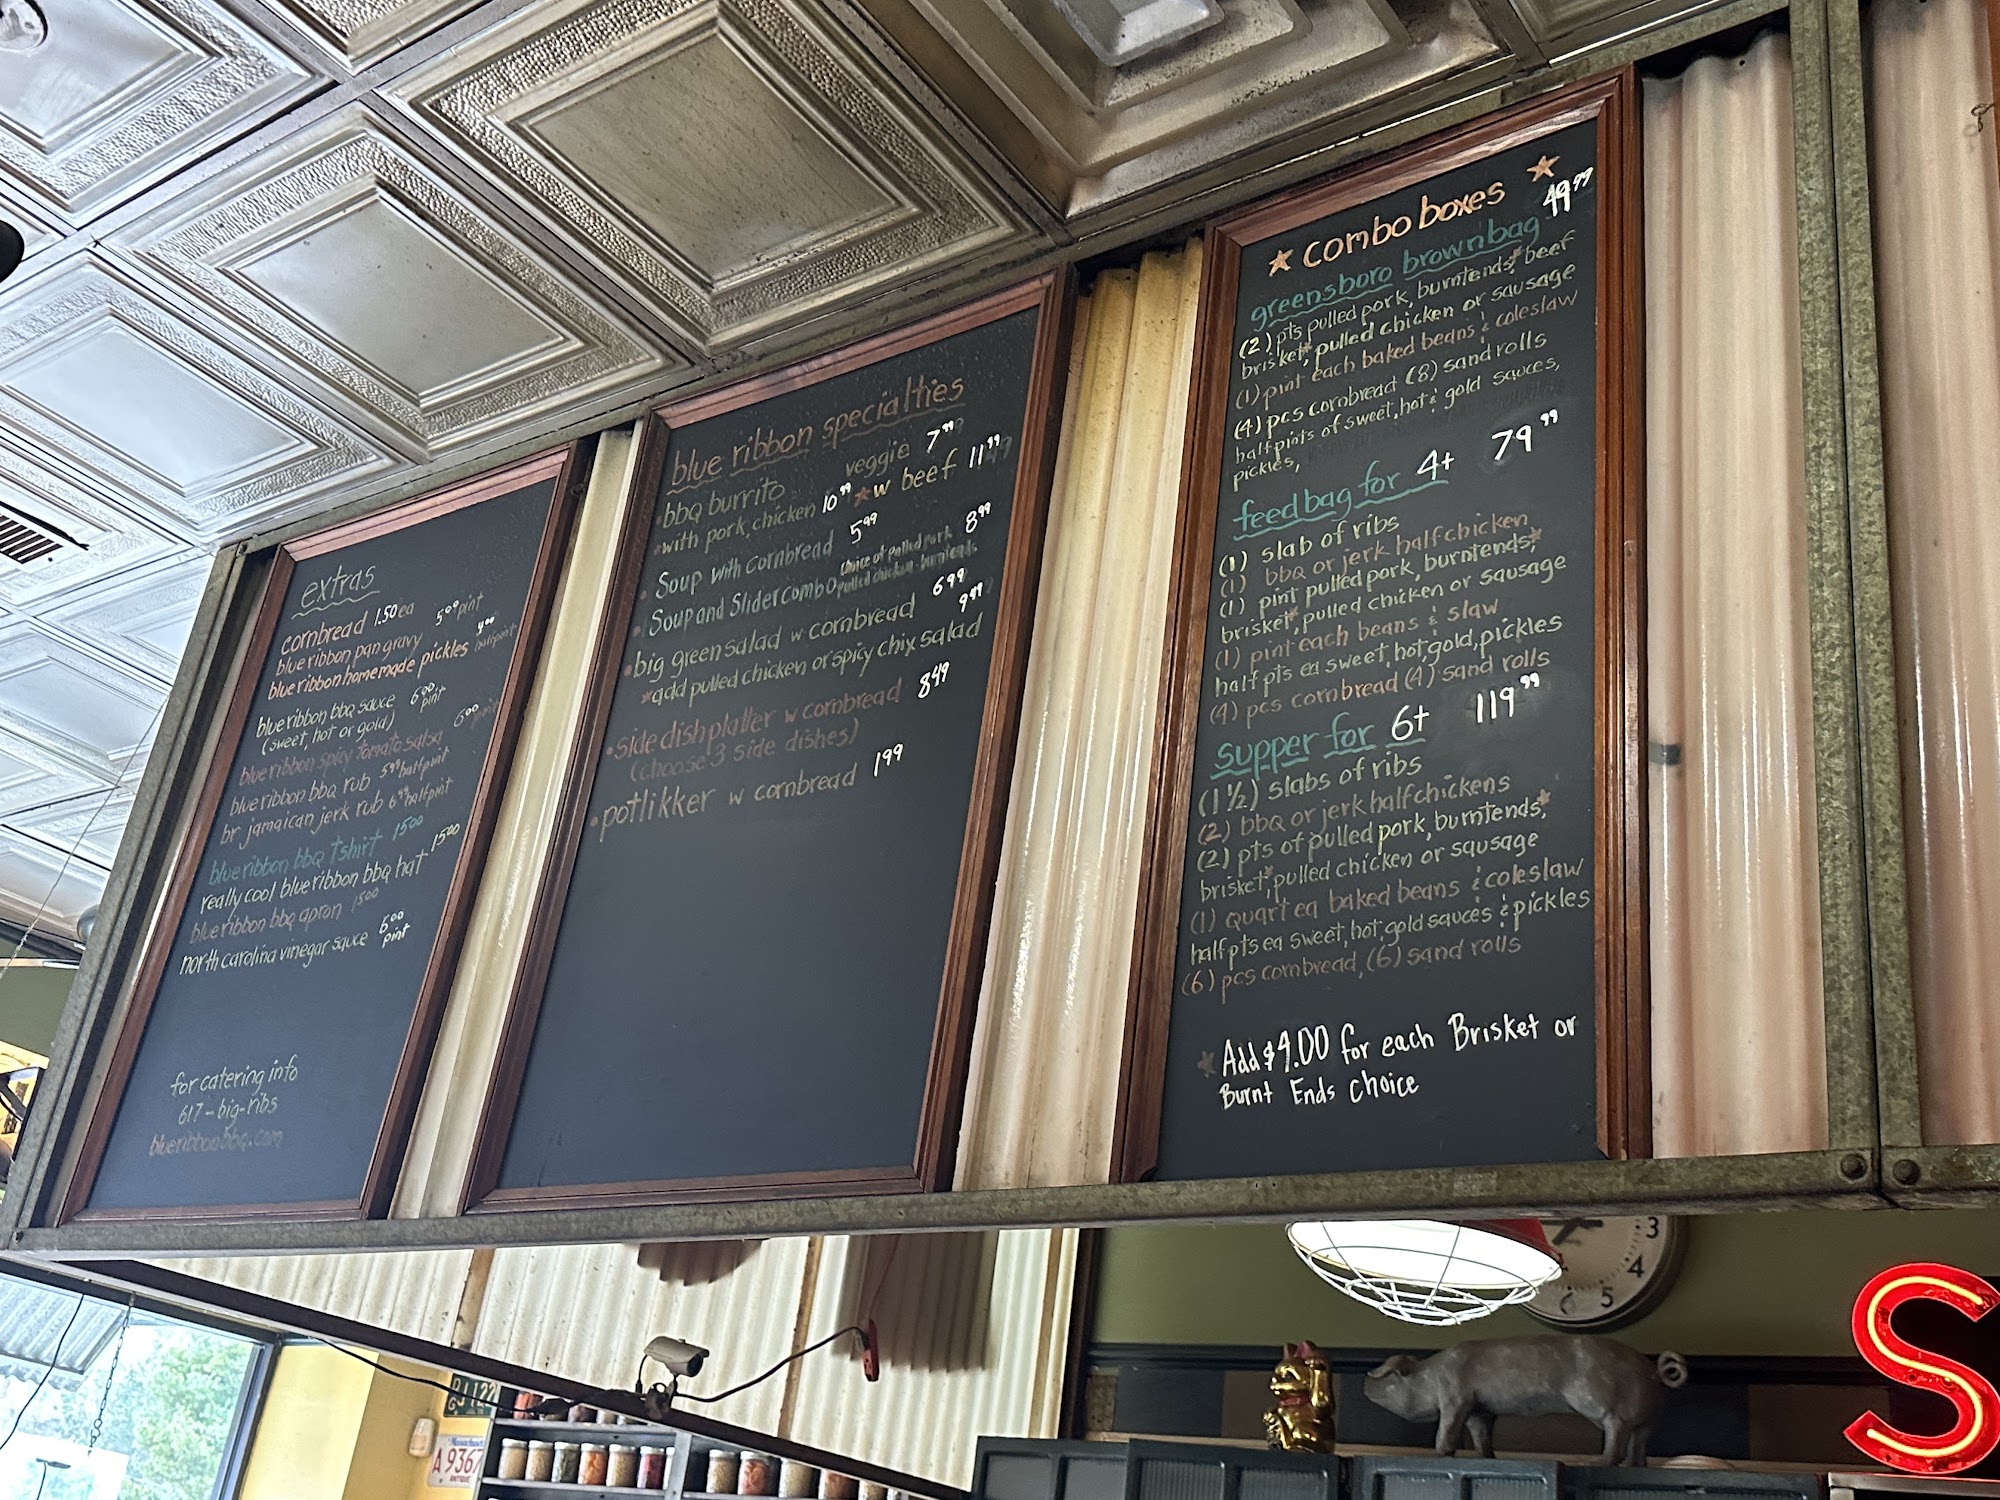 extras
cornbread 1.50 ea
blue ribbon pan gravy 5.00 pint
blue ribbon homemade pickles 4.00 half pint
blue ribbon bbq sauce 6.00 pint
(sweet, hot or gold)
blue ribbon spicy tomato salsa 6.00 pint
blue ribbon bbq rub 5.99 half pint
br jamaican jerk rub 6.99 half pint
blue ribbon bbq tshirt 15.00
really cool blue ribbon bbq hat 15.00
blue ribbon bbq apron 15.00
north carolina vinegar sauce 5.00 pint
for catering info
617-big-ribs
blueribbonbbq.com
blue ribbon specialties
bbq burrito veggie 7.99
with pork, chicken 10.99 w beef 11.99
Soup with Cornbread 5.99
Soup and Slider Combo choice of pulled pork 8.99
pulled chicken - burntends
big green salad w cornbread 6.99
add pulled chicken or spicy chix salad 9.99
side dish platter w cornbread 8.49
(choose 3 side dishes)
potlikker w cornbread 1.99
combo boxes
greensboro brownbag 49.99
(2) pts pulled pork, burntends,* beef
brisket,* pulled chicken or sausage
(1) pint each baked beans & coleslaw
(4) pcs cornbread (8) sand rolls
half pints of sweet, hot & gold sauces,
pickles,
feedbag for 4+ 79.99
(1) slab of ribs
(1) bbq or jerk half chicken
(1) pint pulled pork, burntends,*
brisket,* pulled chicken or sausage
(1) pint each beans & slaw
half pts ea sweet, hot, gold, pickles
(4) pcs cornbread (4) sand rolls
supper for 6+ 119.99
(1 ½) slabs of ribs
(2) bbq or jerk half chickens
(2) pts of pulled pork, burntends,*
brisket,* pulled chicken or sausage
(1) quart ea baked beans & coleslaw
half pts ea sweet, hot, gold sauces & pickles
(6) pcs cornbread, (6) sand rolls
Add $4.00 for each Brisket or
Burnt Ends Choice
3
4
5
6
S
Massachusetts
A 9367
ANTIQUE